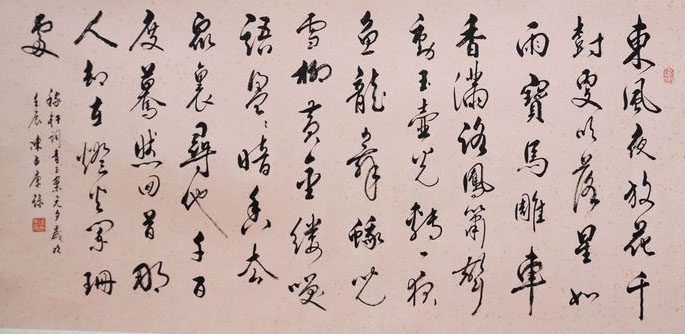 東風夜放花千
樹更吹落星如
雨寶馬雕車
香滿路鳳簫聲
動玉壺光轉一夜
魚龍舞蛾兒
雪柳黃金縷笑
語盈〻暗香去
眾裏尋他千百
度驀然回首那
人卻在燈火闌珊
處
稼軒詞青玉案元夕歲次
壬辰 陳康錄